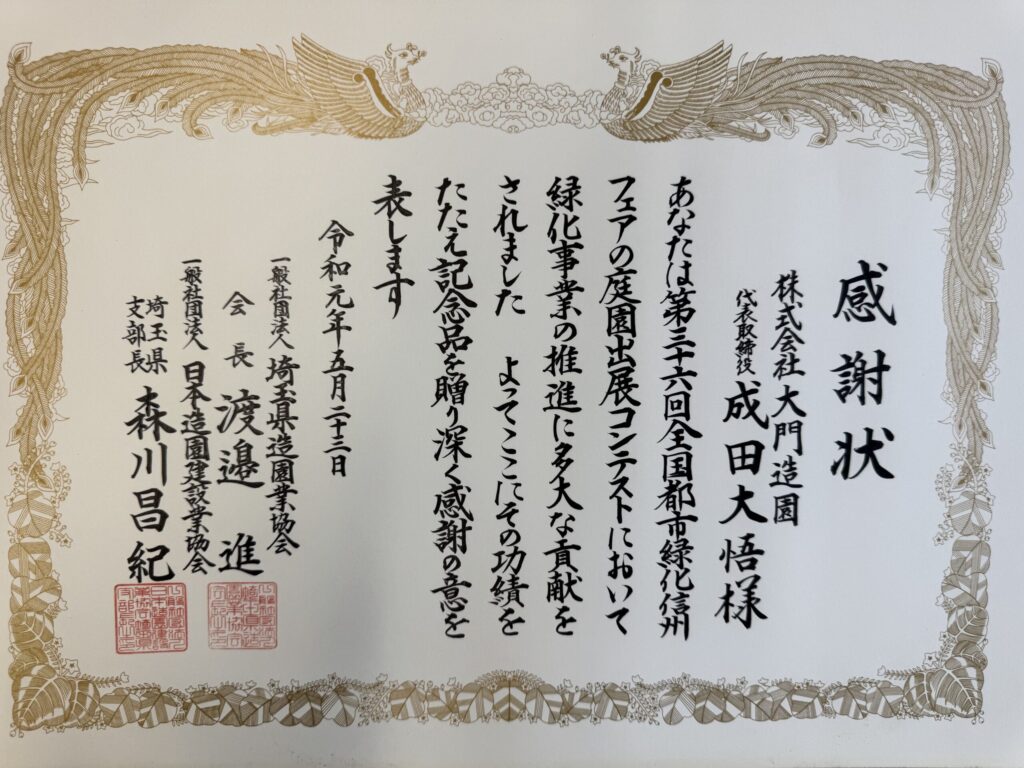 感謝状
株式会社大門造園
代表取締役 成田大悟様
あなたは第三十六回全国都市緑化信州
フェアの庭園出展コンテストにおいて
緑化事業の推進に多大な貢献を
されました よってここにその功績を
たたえ記念品を贈り深く感謝の意を
表します
令和元年五月二十三日
一般社団法人 埼玉県造園業協会
会長 渡邉 進
一般社団法人 日本造園建設業協会
埼玉県支部長 森川昌紀